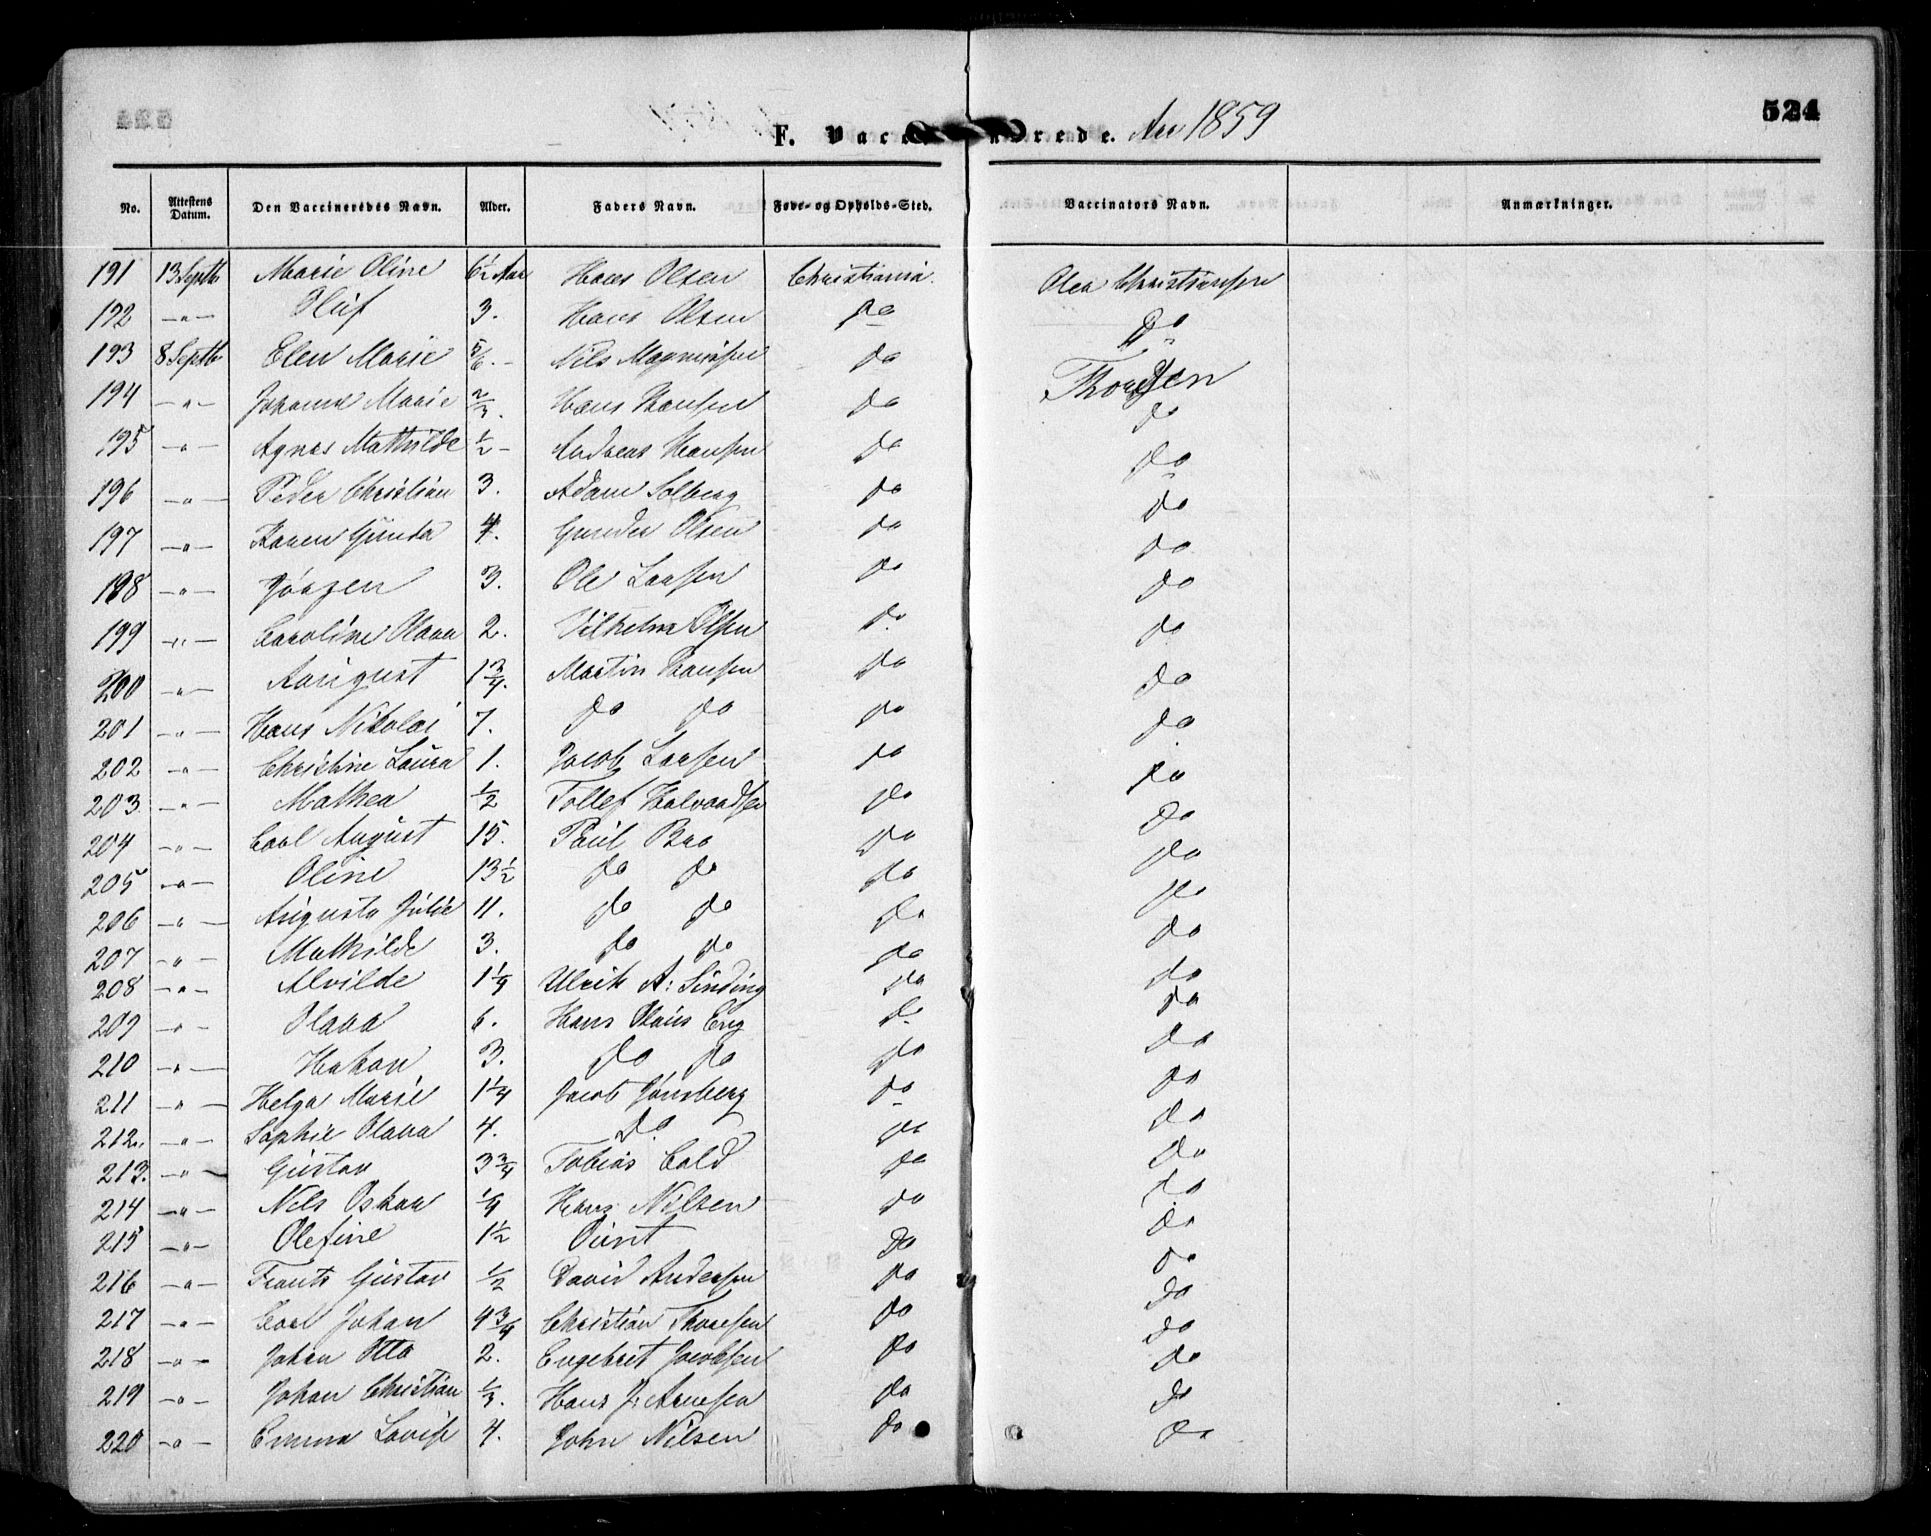 F. Vaccinerede. Aar 1859
524
No. Attestens Datum. Den Vaccineredes Navn. Alder. Faders Navn. Føde- og Opholds-Sted. Vaccinators Navn. Anmærkninger.
191 13 Septb Marie Oline 6½ Aar Hans Olsen Christiania. Olea Christiansen
192 -"- Oluf 3. Hans Olsen Do Do
193 8 Septb Elen Marie 5/6.- Nils Magnussen do Thoresen
194 -"- Johanne Marie 2/3. Hans Hansen do do
195 -"- Agnes Mathilde ½- Andreas Hansen do do
196 -"- Peder Christian 3. Adam Solberg do do
197 -"- Karen Gunda 4. Gunder Olsen do do
198 -"- Jörgen 3. Ole Larsen do do
199 -"- Caroline Olava 2. Vilhelm Olsen do do
200 -"- August 1¾. Martin Hansen do do
201 -"- Hans Nikolai 7. do do do do
202 -"- Christine Laura 1. Jacob Larsen do do
203 -"- Mathea ½ Tollef Halvordsen do do
204 -"- Carl August 15. Paul Bro do do
205 -"- Oline 13½ do do do do
206 -"- Augusta Julie 11. do do do do
207 -"- Mathilde 3. do do do do
208 -"- Alvilde 1¼ Ulrik A: Sinding do do
209 -"- Olava 6. Hans Olaus Eng do do
210 -"- Hakon 3. do do do do
211 -"- Helga Marie 1¼ Jacob Jønsberg do do
212. -"- Sophie Olava 4. Do do do
213. -"- Gustav 3¾ Tobias Cold do do
214 -"- Nils Oskar ¼ Hans Nilsen do do
215 -"- Olefine 1½ do do
216 -"- Frants Gustav ½ David Andersen do do
217 -"- Carl Johan 4¾ Christian Thoresen do do
218 -"- Johan Otto 2. Engebret Jacobsen do do
219 -"- Johan Christian ⅓. Hans J: Arnesen do do
220 -"- Emma Lovise 4. John Nilsen do do